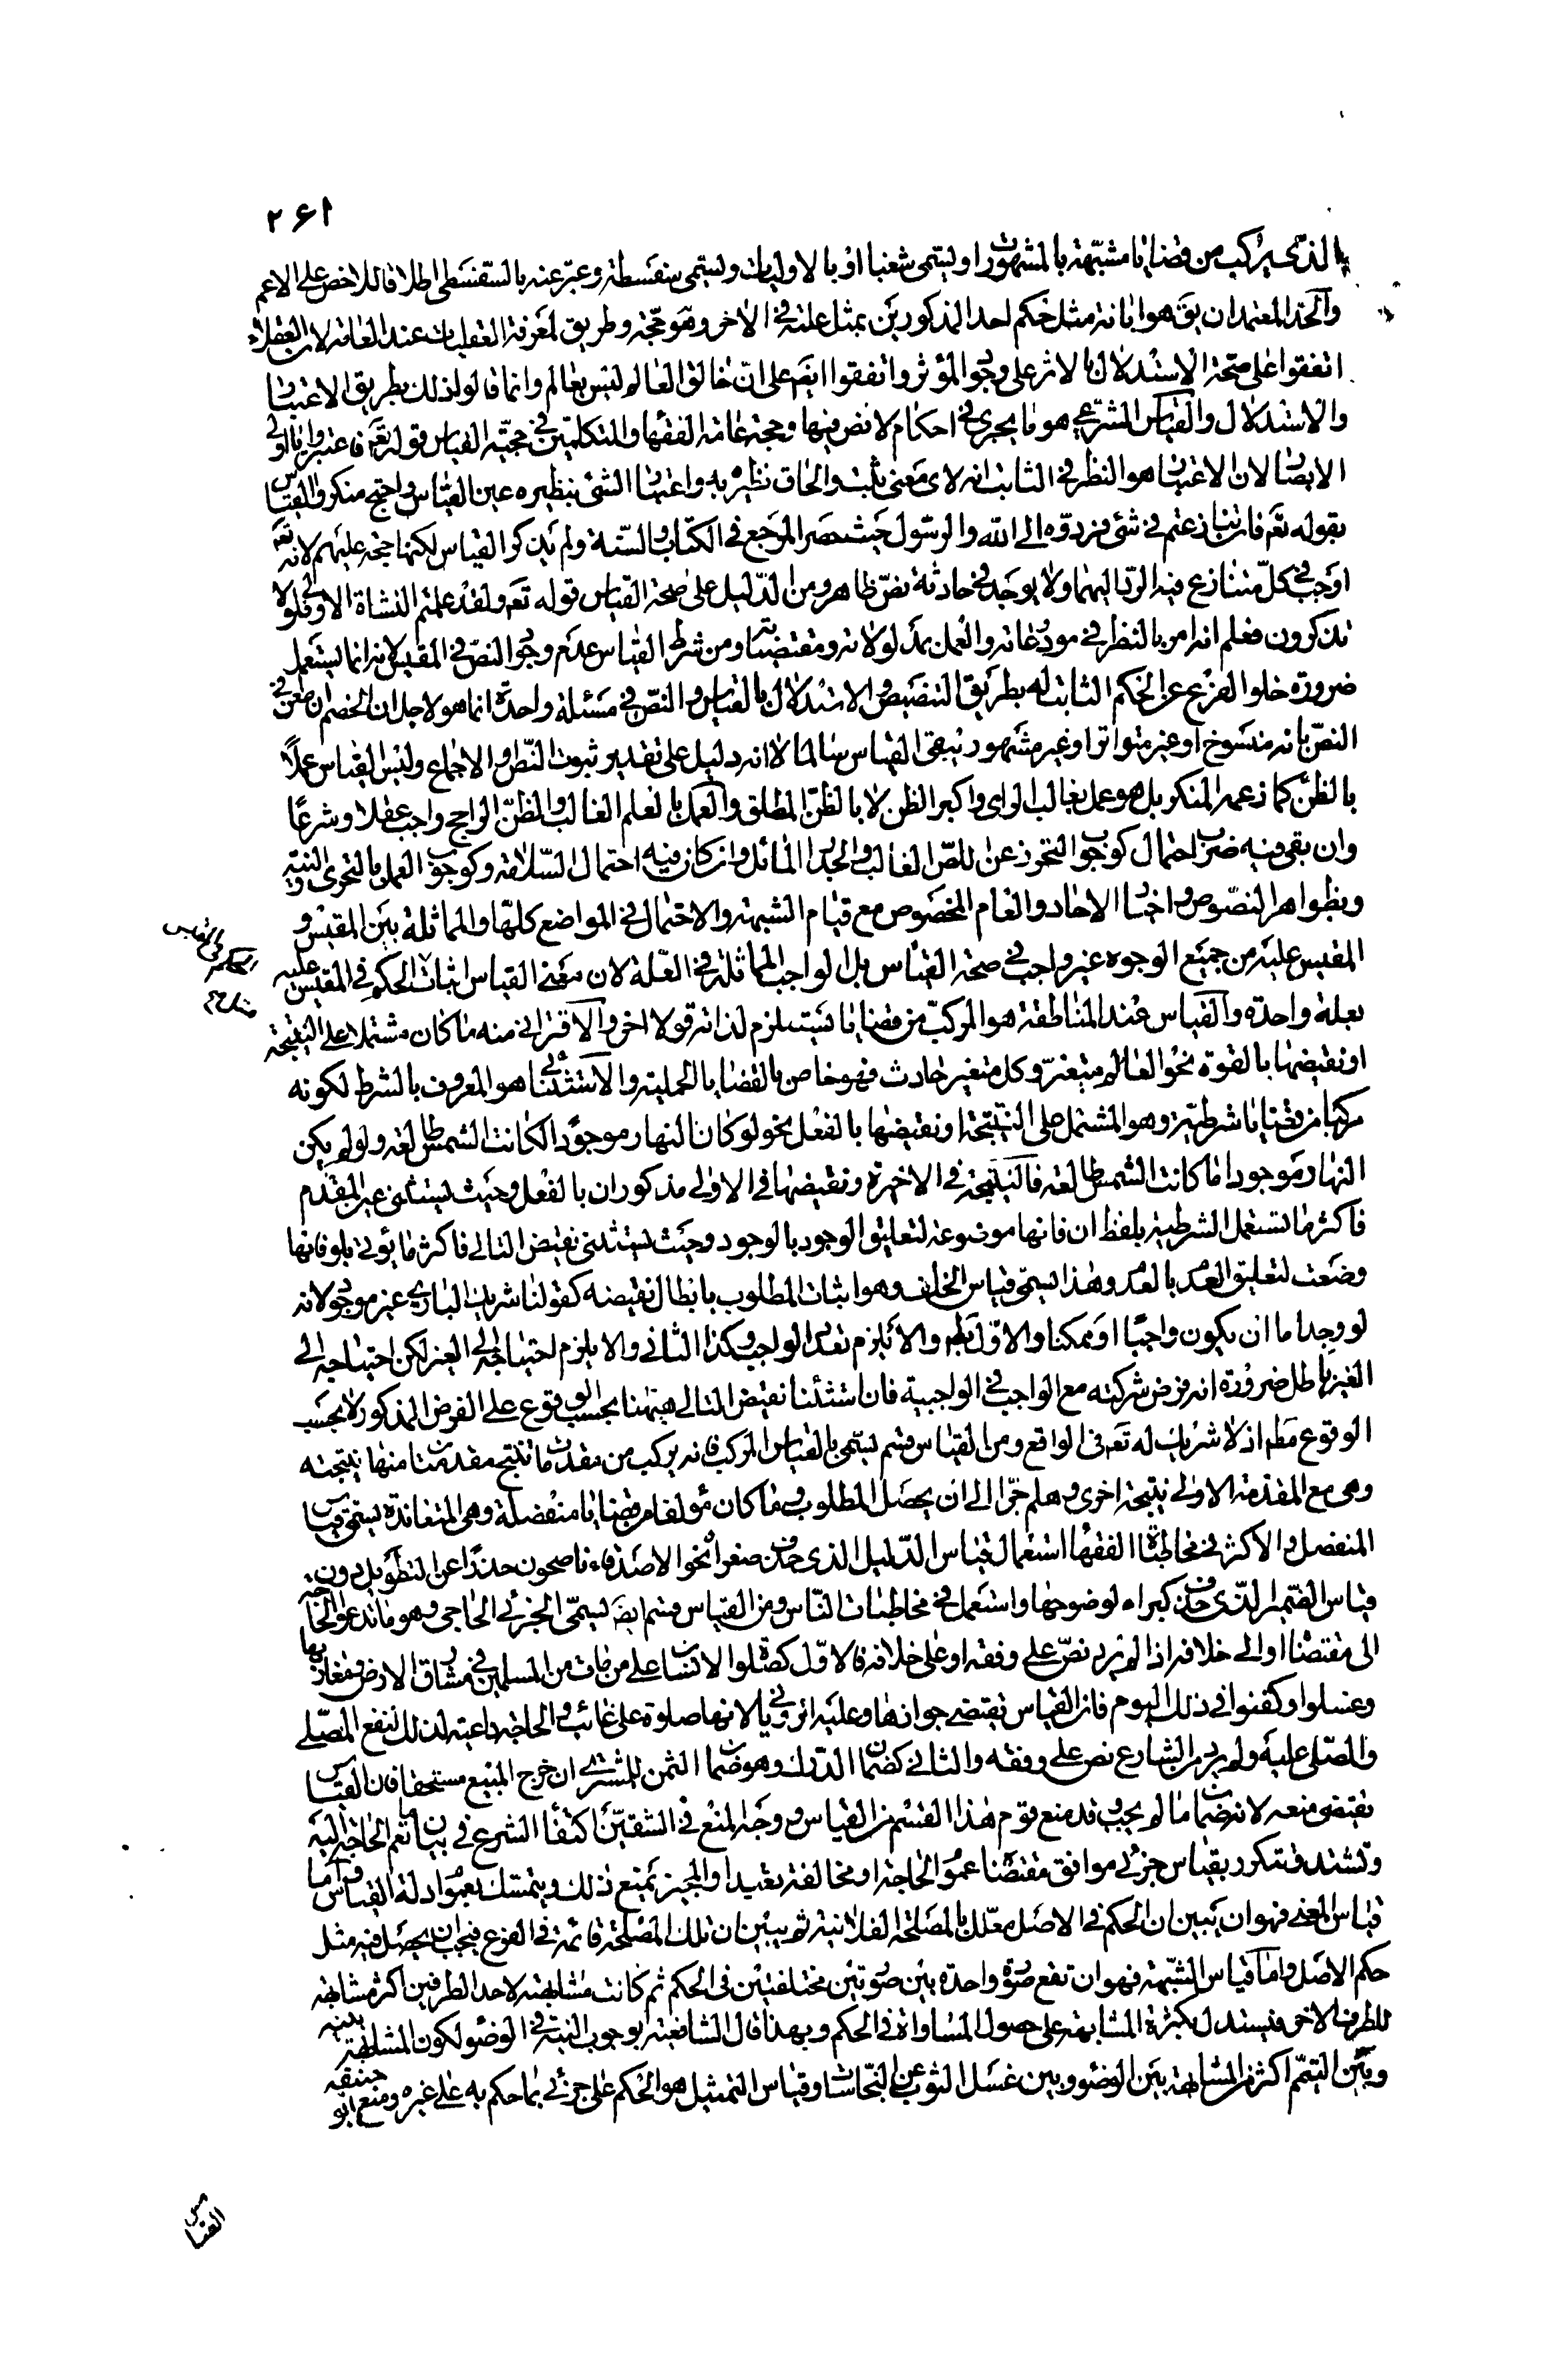 ٢٦١
الذى يركب من قضايا مشبهة بالمشهورات او يسمى شغبا او بالاوليات ويسمى سفسطة وعبر عنه بالسفسطى اطلاقا للاخص على الاعم
والحد المعتمد ان يق هو ابانة مثل حكم احد المذكورين بمثل علته فى الاخر وهو حجة وطريق لمعرفة العقليات عند العامة لان العقلاء
اتفقوا على صحة الاستدلال بالاثر على وجود المؤثر واتفقوا ايضم على ان خالق العالم ليس بعالم وانما قالوا ذلك بطريق الاعتبار
والاستدلال والقياس الشرعى هو ما يجرى فى احكام لا نص فيها وحجة عامة الفقهاء والمتكلمين فى حجية القياس قوله تعم فاعتبروا يا اولى
الابصار لان الاعتبار هو النظر فى الثابت انه لاى معنى ثبت والحاق نظيره به واعتبار الشئ بنظيره عين القياس واحتج منكروا القياس
بقوله تعم فان تنازعتم فى شئ فردوه الى الله والرسول حيث حصر المرجع فى الكتاب والسنة ولم يذكر القياس لكنها حجة عليهم لانه تعم
اوجب فى كل متنازع فيه الرد اليهما ولا يوجد فى حادثة نص ظاهر ومن الدليل على صحة القياس قوله تعم ولقد علمتم النشاة الاولى فلولا
تذكرون فعلم انه امر بالنظر فى مودعاته والعمل بمدلولاته ومقتضياته ومن شرط القياس عدم وجود النص فى المقيس لانه انما يستعمل
ضرورة خلو الفرع عن الحكم الثابت له بطريق التنصيص والاستدلال بالقياس والنص فى مسئلة واحدة انما هو لاجل ان الخصم ان طعن فى
النص بانه منسوخ او غير متواتر او غير مشهور يبقى القياس سالما لا انه دليل على تقدير ثبوت النص والاجماع وليس القياس عملا
بالظن كما زعمه المنكر بل هو عمل بغالب الراى واكبر الظن لا بالظن المطلق والعمل بالعلم الغالب والظن الراجح واجب عقلا وشرعا
وان بقى فيه ضرب احتمال كوجوب التحرز عن اللص الغالب والجدار المائل وان كان فيه احتمال السلامة وكوجوب العمل بالتحرى والنية
وبظواهر النصوص واخبار الاحاد والعام المخصوص مع قيام الشبهة والاحتمال فى المواضع كلها والمماثلة بين المقيس و
المقيس عليه من جميع الوجوه غير واجب فى صحة القياس بل الواجب المماثلة فى العلة لان معنى القياس اثبات الحكم فى المقيس عليه
بعلة واحدة والقياس عند المناطقة هو المركب من قضايا يستلزم لذاته قولا اخر والاقترانى منه ما كان مشتملا على النتيجة
او نقيضها بالقوة نحو العالم متغير وكل متغير حادث فهو خاص بالقضايا الحملية والاستثنائى هو المعروف بالشرط لكونه
مركبا من قضايا شرطية وهو المشتمل على النتيجة او نقيضها بالفعل نحو لو كان النهار موجودا لكانت الشمس طالعة ولو لم يكن
النهار موجودا ما كانت الشمس طالعة فالنتيجة فى الاخيرة ونقيضها فى الاولى مذكوران بالفعل وحيث يستثنى عين المقدم
فاكثر ما تستعمل الشرطية بلفظ ان فانها موضوعة لتعليق الوجود بالوجود وحيث يستثنى نقيض التالى فاكثر ما يؤتى بلو فانها
وضعت لتعليق العدم بالعدم وهذا يسمى قياس الخلف وهو اثبات المطلوب بابطال نقيضه كقولنا شريك البارى غير موجود لانه
لو وجد اما ان يكون واجبا او ممكنا والاول بط والا يلزم تعدد الواجب وكذا الثانى والا يلزم احتياجه الى الغير لكن احتياجه الى
الغير باطل ضرورة انه فرض شركته مع الواجب فى الواجبية فان استثنائنا نقيض التالى ههنا بحسب الوقوع على الفرض المذكور لا بحسب
الوقوع مطم اذ لا شريك له تعم فى الواقع ومن القياس قسم يسمى بالقياس المركب فانه يركب من مقدمات ما تنتج مقدمتا منها نتيجته
وهى مع المقدمة الاولى نتيجة اخرى وهلم جرا الى ان يحصل المطلوب وما كان مؤلفا من قضايا منفصلة وهى المتعاندة يسمى قياس
المنفصل والاكثر فى مخاطبات الفقهاء استعمال قياس الدليل الذى حذف صغراه نحو الاصدقاء ناصحون حذرا عن التطويل دون
قياس الضمير الذى حذف كبراه لوضوحها واستعمل فى مخاطبات الناس ومن القياس قسم ايضم يسمى الجزئى الحاجى وهو ما تدعو الحاجة
الى مقتضاه او الى خلافه اذا لم يرد نص على وفقه او على خلافه فالاول كصلوة الانسان على من مات من المسلمين فى مشارق الارض ومغاربها
وغسلوا وكفنوا فى ذلك اليوم فان القياس يقتضى جوازها وعليه الرويانى لانها صلوة على غائب والحاجة داعية لذلك لنفع المصلى
والمصلى عليه ولم يرد من الشارع نص على وفقه والثانى كضمان الدرك وهو ضمان الثمن للمشترى ان خرج المبيع مستحقا فان القياس
يقتضى منعه لانه ضمان ما لم يجب وقد منع قوم هذا القسم من القياس ووجه المنع فى الشقين اكتفاء الشرع فى بيان ما تعم الحاجة اليه
وتشتد فتتكرر بقياس جزئى موافق مقتضاه عموم الحاجة او مخالفته بعيد والمجيز يمنع ذلك ويتمسك بعموم ادلة القياس واما
قياس المعنى فهو ان يبين ان الحكم فى الاصل معلل بالمصلحة الفلانية ثم يبين ان تلك المصلحة قائمة فى الفرع فيجب ان يحصل فيه مثل
حكم الاصل واما قياس الشبهة فهو ان تقع صورة واحدة بين صورتين مختلفتين فى الحكم ثم كانت مشابهته لاحد الطرفين اكثر مشابهة
للطرف الاخر فيستدل بكثرة المشابهة على حصول المساواة فى الحكم وبهذا قال الشافعية بوجوب النية فى الوضوء لكون المشابهة بينه
وبين التيمم اكثر من المشابهة بين الوضوء وبين غسل الثوب عن النجاسات وقياس التمثيل هو الحكم على جزئى بما حكم به على غيره ومنع ابو حنيفة
القياس